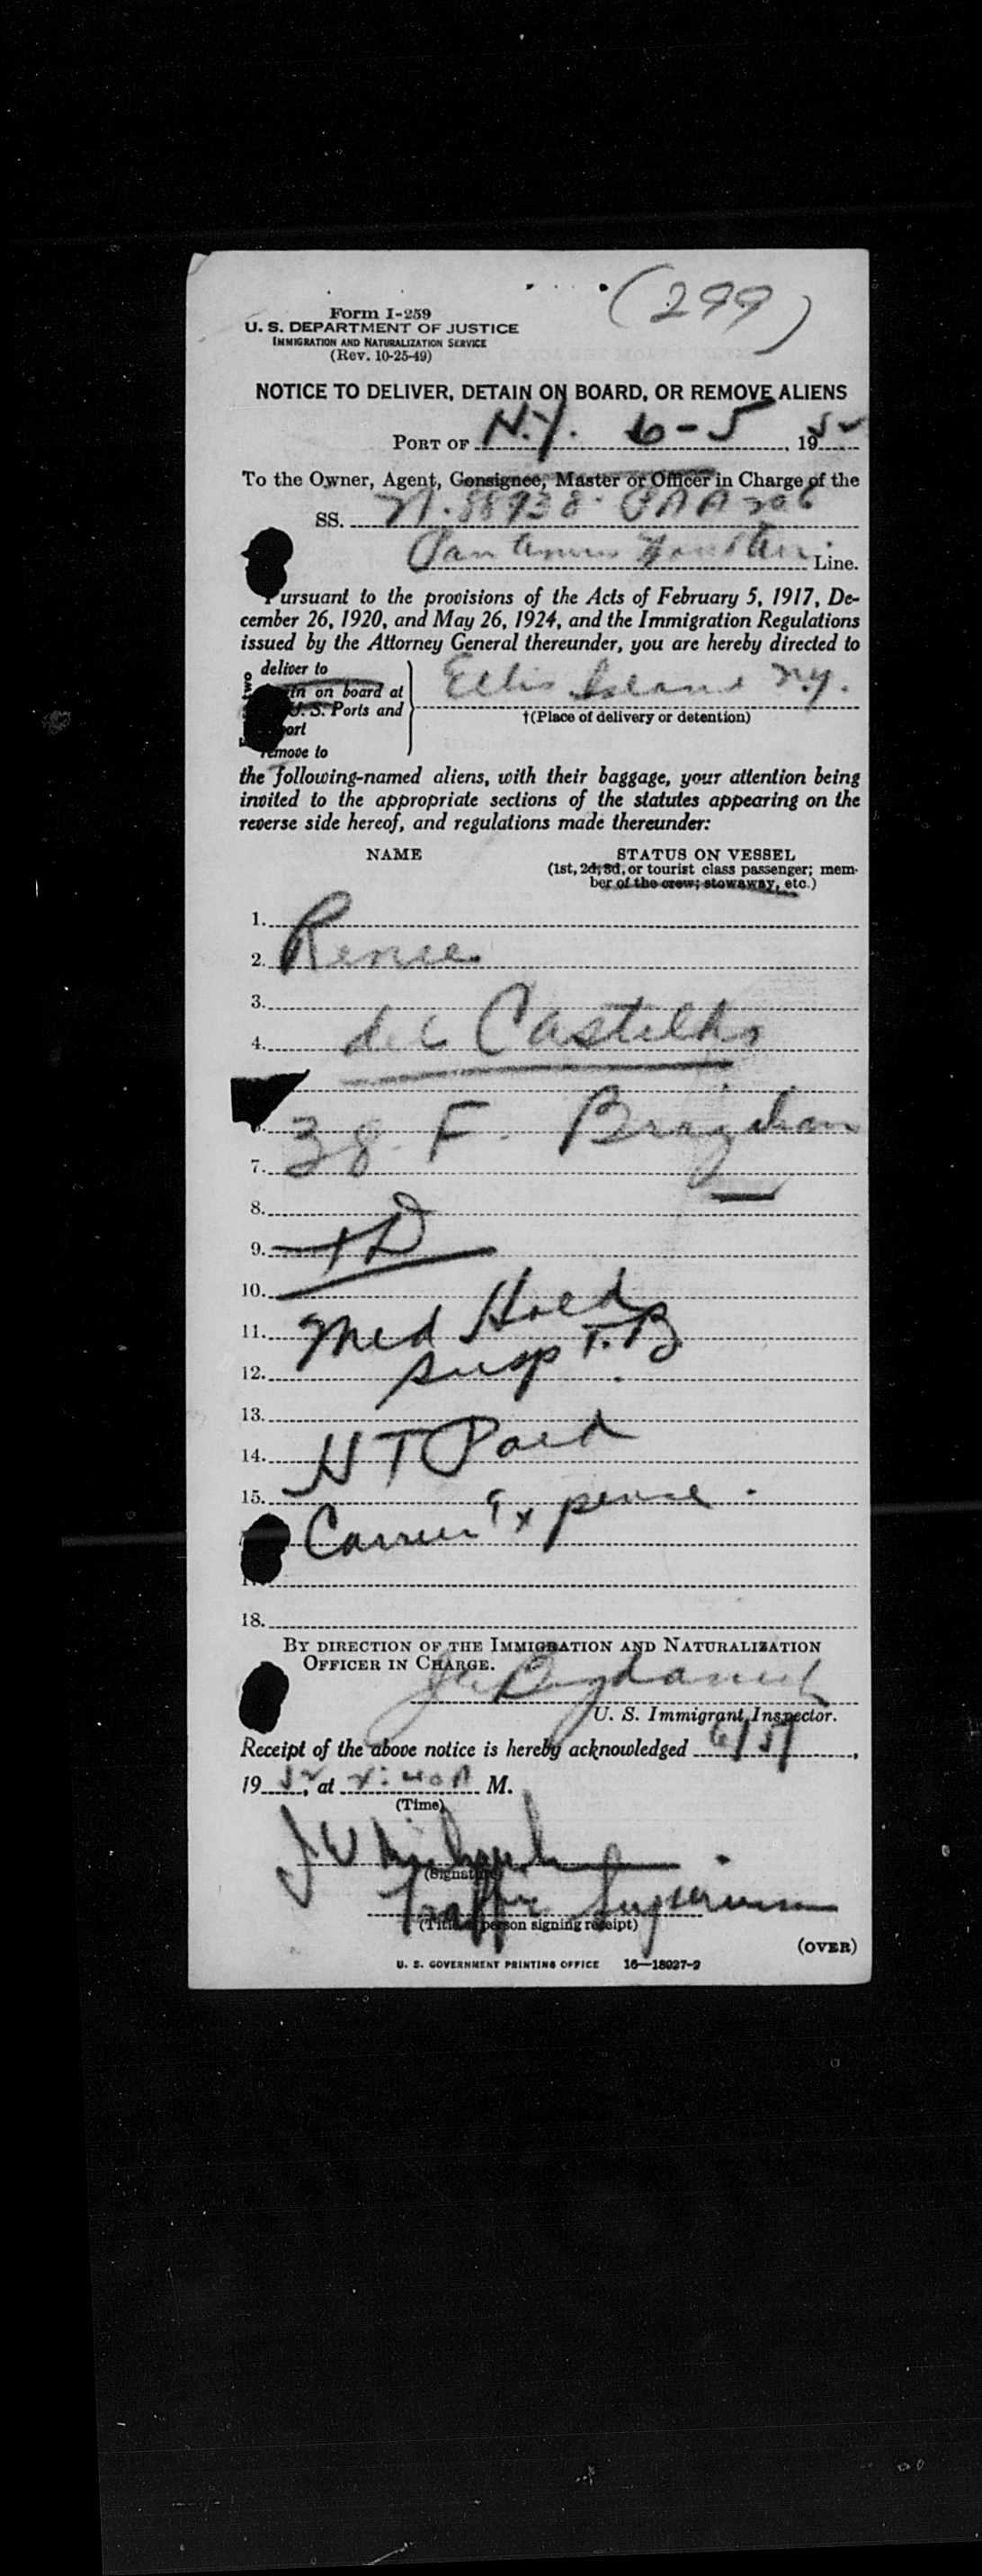 (299)
Form I-259
U. S. DEPARTMENT OF JUSTICE
IMMIGRATION AND NATURALIZATION SERVICE
(Rev. 10-25-49)
NOTICE TO DELIVER, DETAIN ON BOARD, OR REMOVE ALIENS
PORT OF N.Y. 6-5, 1952
To the Owner, Agent, Consignee, Master or Officer in Charge of the
SS. N. 88938. PAA 206
Pan Line.
Pursuant to the provisions of the Acts of February 5, 1917, De-
cember 26, 1920, and May 26, 1924, and the Immigration Regulations
issued by the Attorney General thereunder, you are hereby directed to
deliver to
on board at Ellis Island N.Y.
U. S. Ports and
†(Place of delivery or detention)
remove to
the following-named aliens, with their baggage, your attention being
invited to the appropriate sections of the statutes appearing on the
reverse side hereof, and regulations made thereunder:
NAME STATUS ON VESSEL
(1st, 2d, 3d, or tourist class passenger; mem-
ber of the crew; stowaway, etc.)
1.
2. Renee
3.
4. de Castelho
38. F. Brazilian
7.
8.
9. TD
10.
11. Med Hold
12. susp T.B.
13.
14. HT Paid
15.
Carrier Expense.
18.
BY DIRECTION OF THE IMMIGRATION AND NATURALIZATION
OFFICER IN CHARGE.
U. S. Immigrant Inspector.
Receipt of the above notice is hereby acknowledged 6/5,
1952, at :40 A M.
(Time)
(Signature)
Traffic Supervisor
(Title of person signing receipt)
(OVER)
U. S. GOVERNMENT PRINTING OFFICE 16—18027-2